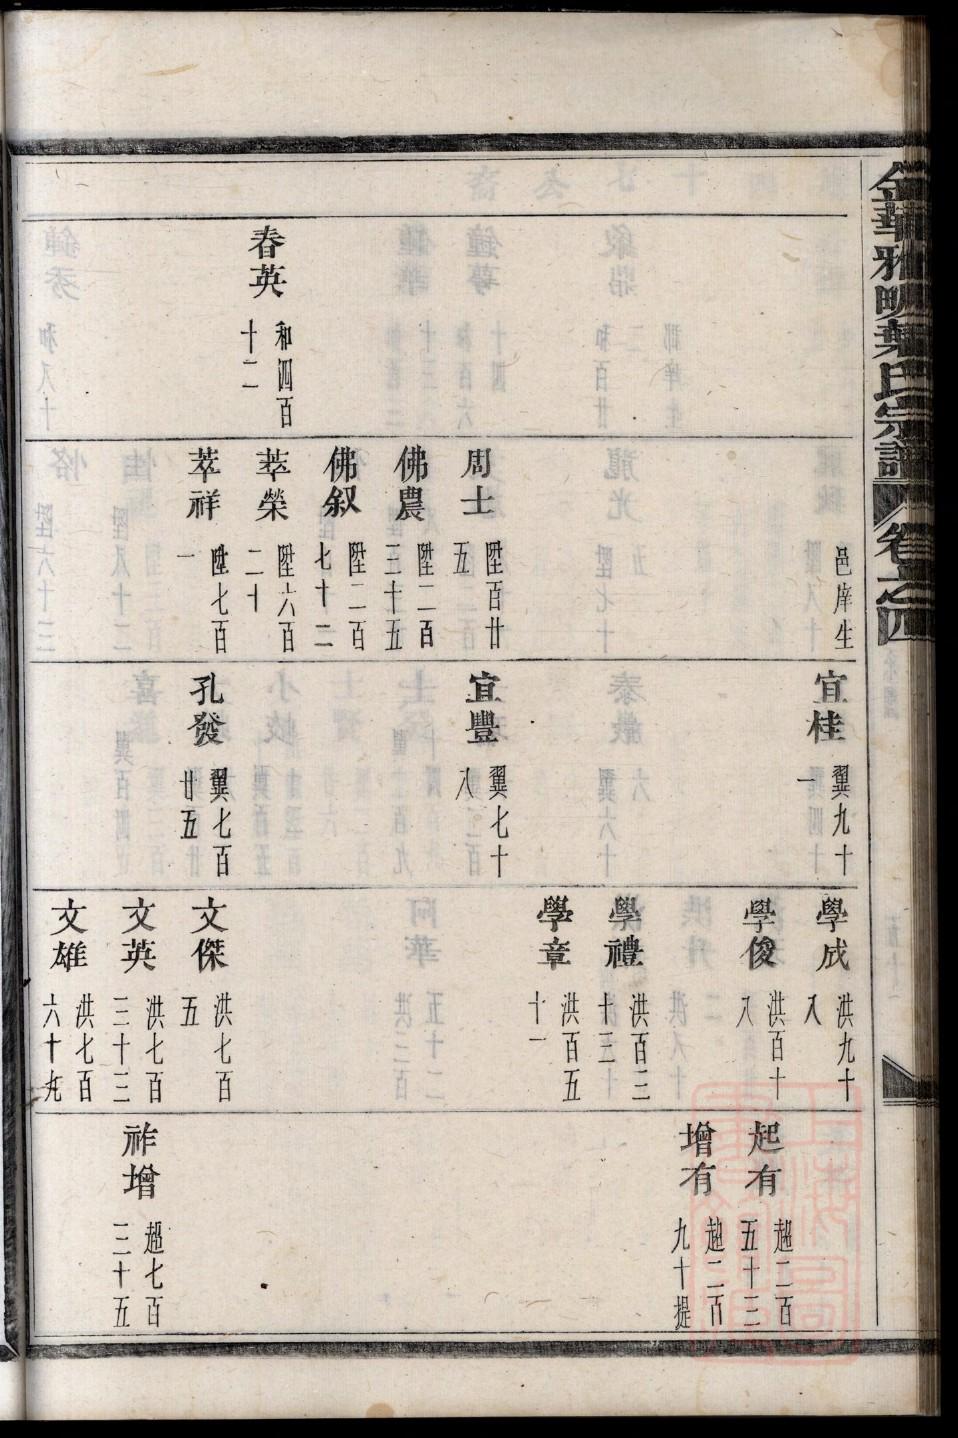 金華雅畈葉氏宗譜
卷之四
春英
和四百
十二
邑庠生
周士
陞百廿
五
佛農
陞二百
三十五
佛叙
陞二百
七十二
萃榮
陞六百
二十
萃祥
陞七百
一
宜桂
翼九十
一
宜豐
翼七十
八
孔發
翼七百
廿五
學成
洪九十
八
學俊
洪百十
八
學禮
洪百三
十三
學章
洪百五
十一
文傑
洪七百
五
文英
洪七百
三十三
文雄
洪七百
六十九
起有
趨二百
五十三
增有
趨二百
九十提
祚增
趨七百
三十五